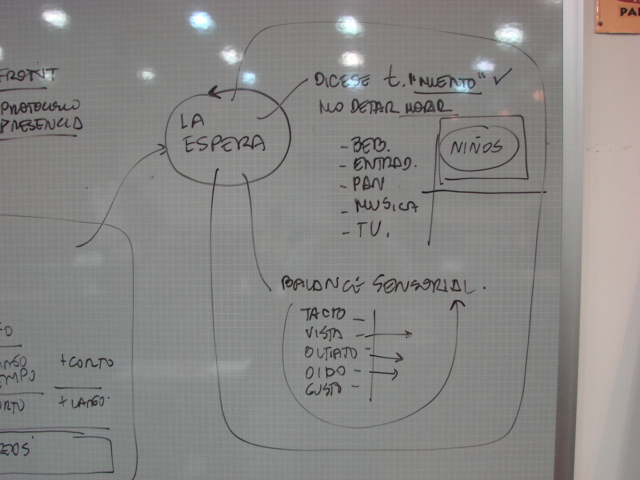 FRONT
PROTOCOLO
PRESENCIA
LA
ESPERA
DICESE t. "MUERTO" ✓
NO DEJAR MORIR
- BEB.
- ENTRAD.
- PAN
- MUSICA
- TV.
NIÑOS
BALANCE SENSORIAL.
TACTO -
VISTA
OLFATO -
OIDO -
GUSTO -
+ CORTO
+ LARGO.
PA